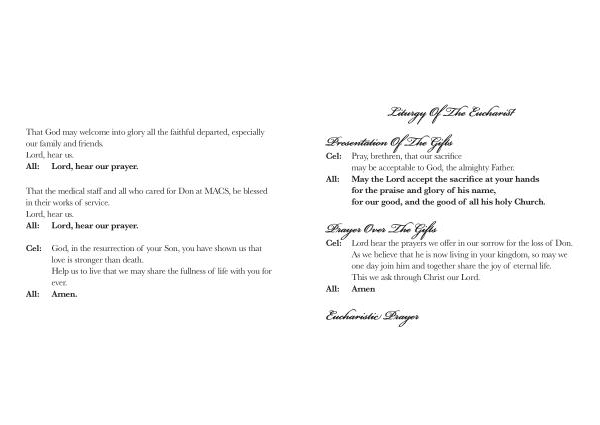 That God may welcome into glory all the faithful departed, especially
our family and friends.
Lord, hear us.
All: Lord, hear our prayer.
That the medical staff and all who cared for Don at MACS, be blessed
in their works of service.
Lord, hear us.
All: Lord, hear our prayer.
Cel: God, in the resurrection of your Son, you have shown us that
love is stronger than death.
Help us to live that we may share the fullness of life with you for
ever.
All: Amen.
Liturgy Of The Eucharist
Presentation Of The Gifts
Cel: Pray, brethren, that our sacrifice
may be acceptable to God, the almighty Father.
All: May the Lord accept the sacrifice at your hands
for the praise and glory of his name,
for our good, and the good of all his holy Church.
Prayer Over The Gifts
Cel: Lord hear the prayers we offer in our sorrow for the loss of Don.
As we believe that he is now living in your kingdom, so may we
one day join him and together share the joy of eternal life.
This we ask through Christ our Lord.
All: Amen
Eucharistic Prayer